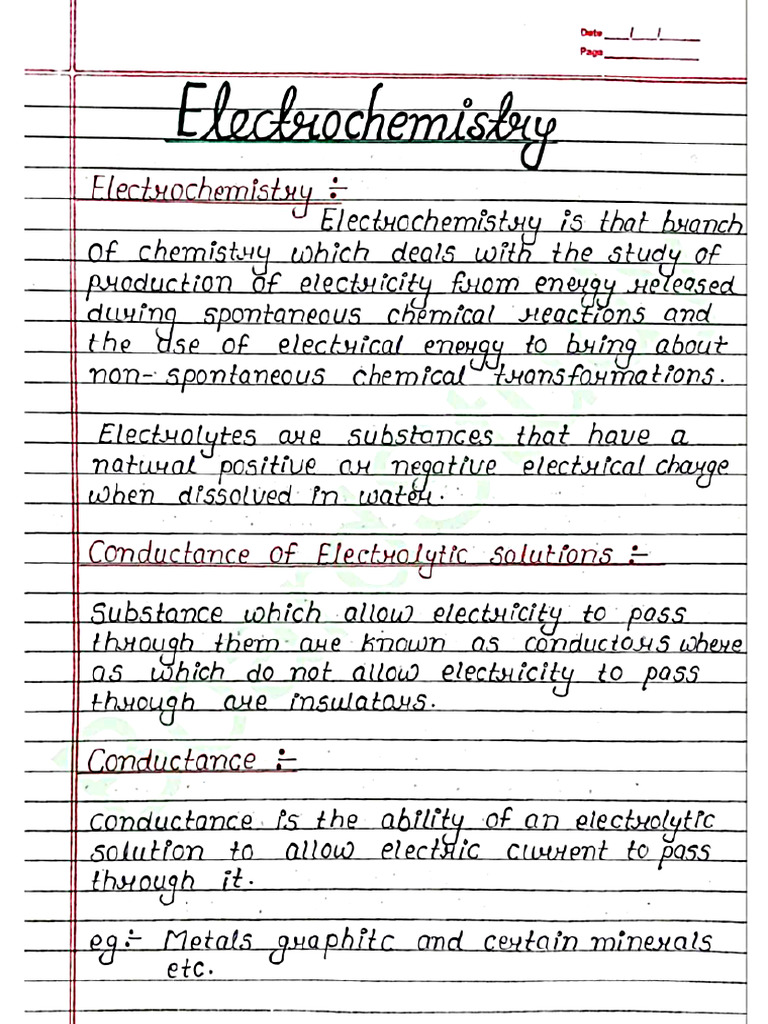 Date ___/___/_____
Page ____________
Electrochemistry
Electrochemistry :-
Electrochemistry is that branch
of chemistry which deals with the study of
production of electricity from energy released
during spontaneous chemical reactions and
the use of electrical energy to bring about
non- spontaneous chemical transformations.
Electrolytes are substances that have a
natural positive or negative electrical charge
when dissolved in water.
Conductance of Electrolytic solutions :-
Substance which allow electricity to pass
through them are known as conductors where
as which do not allow electricity to pass
through are insulators.
Conductance :-
Conductance is the ability of an electrolytic
solution to allow electric current to pass
through it.
eg:- Metals graphite and certain minerals
etc.